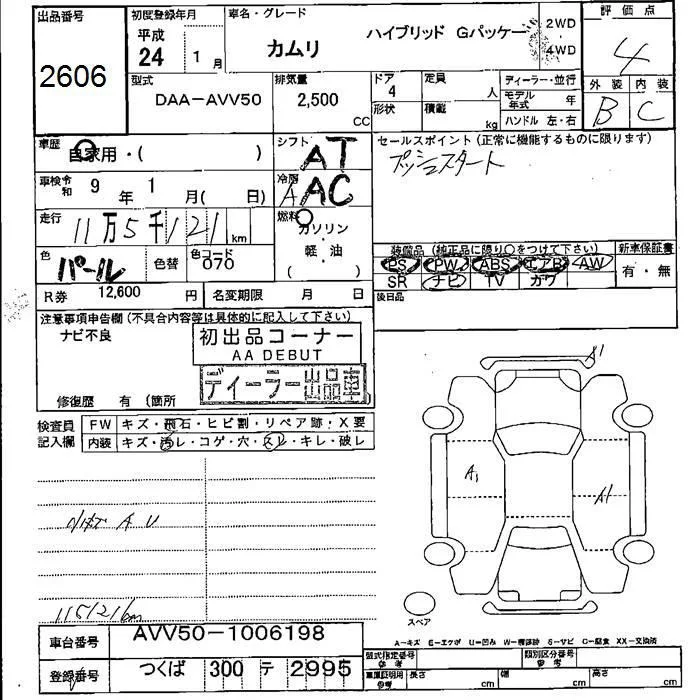 出品番号
2606
初度登録年月
平成
24 1月
車名・グレード
カムリ ハイブリッド Gパッケー
2WD
4WD
評価点
4
外装 内装
B C
型式
DAA-AVV50
排気量
2,500
CC
ドア
4
形状
定員
人
積載
kg
ディーラー・並行
モデル年式 年
ハンドル 左・右
車歴
自家用・( )
シフト
AT
セールスポイント (正常に機能するものに限ります)
プッシュスタート
車検 令和 9年 1月( 日)
冷房
A AC
走行
11万5千121 km
燃料
ガソリン
軽・油
( )
色
パール
色替
色コード
070
装備品 (純正品に限り○をつけて下さい)
PS PW ABS エアB AW
SR ナビ TV カワ
新車保証書
有・無
後日品
R券 12,600 円
名変期限 月 日
注意事項申告欄(不具合内容等は具体的に記入して下さい)
ナビ不良
初出品コーナー
AA DEBUT
ディーラー出品車
修復歴 有 (箇所
検査員記入欄
FW キズ・飛石・ヒビ割・リペア跡・X要
内装 キズ・汚レ・コゲ・穴・スレ・キレ・破レ
A U
115121km
A1
A1
A1
スペア
A-キズ E-エクボ U-凹み W-補修跡 S-サビ C-腐食 XX-交換済
車台番号
AVV50-1006198
登録番号
つくば 300 テ 2995
型式指定番号
参考
類別区分番号
参考
車庫証明用
参考
長さ cm
幅 cm
高さ cm